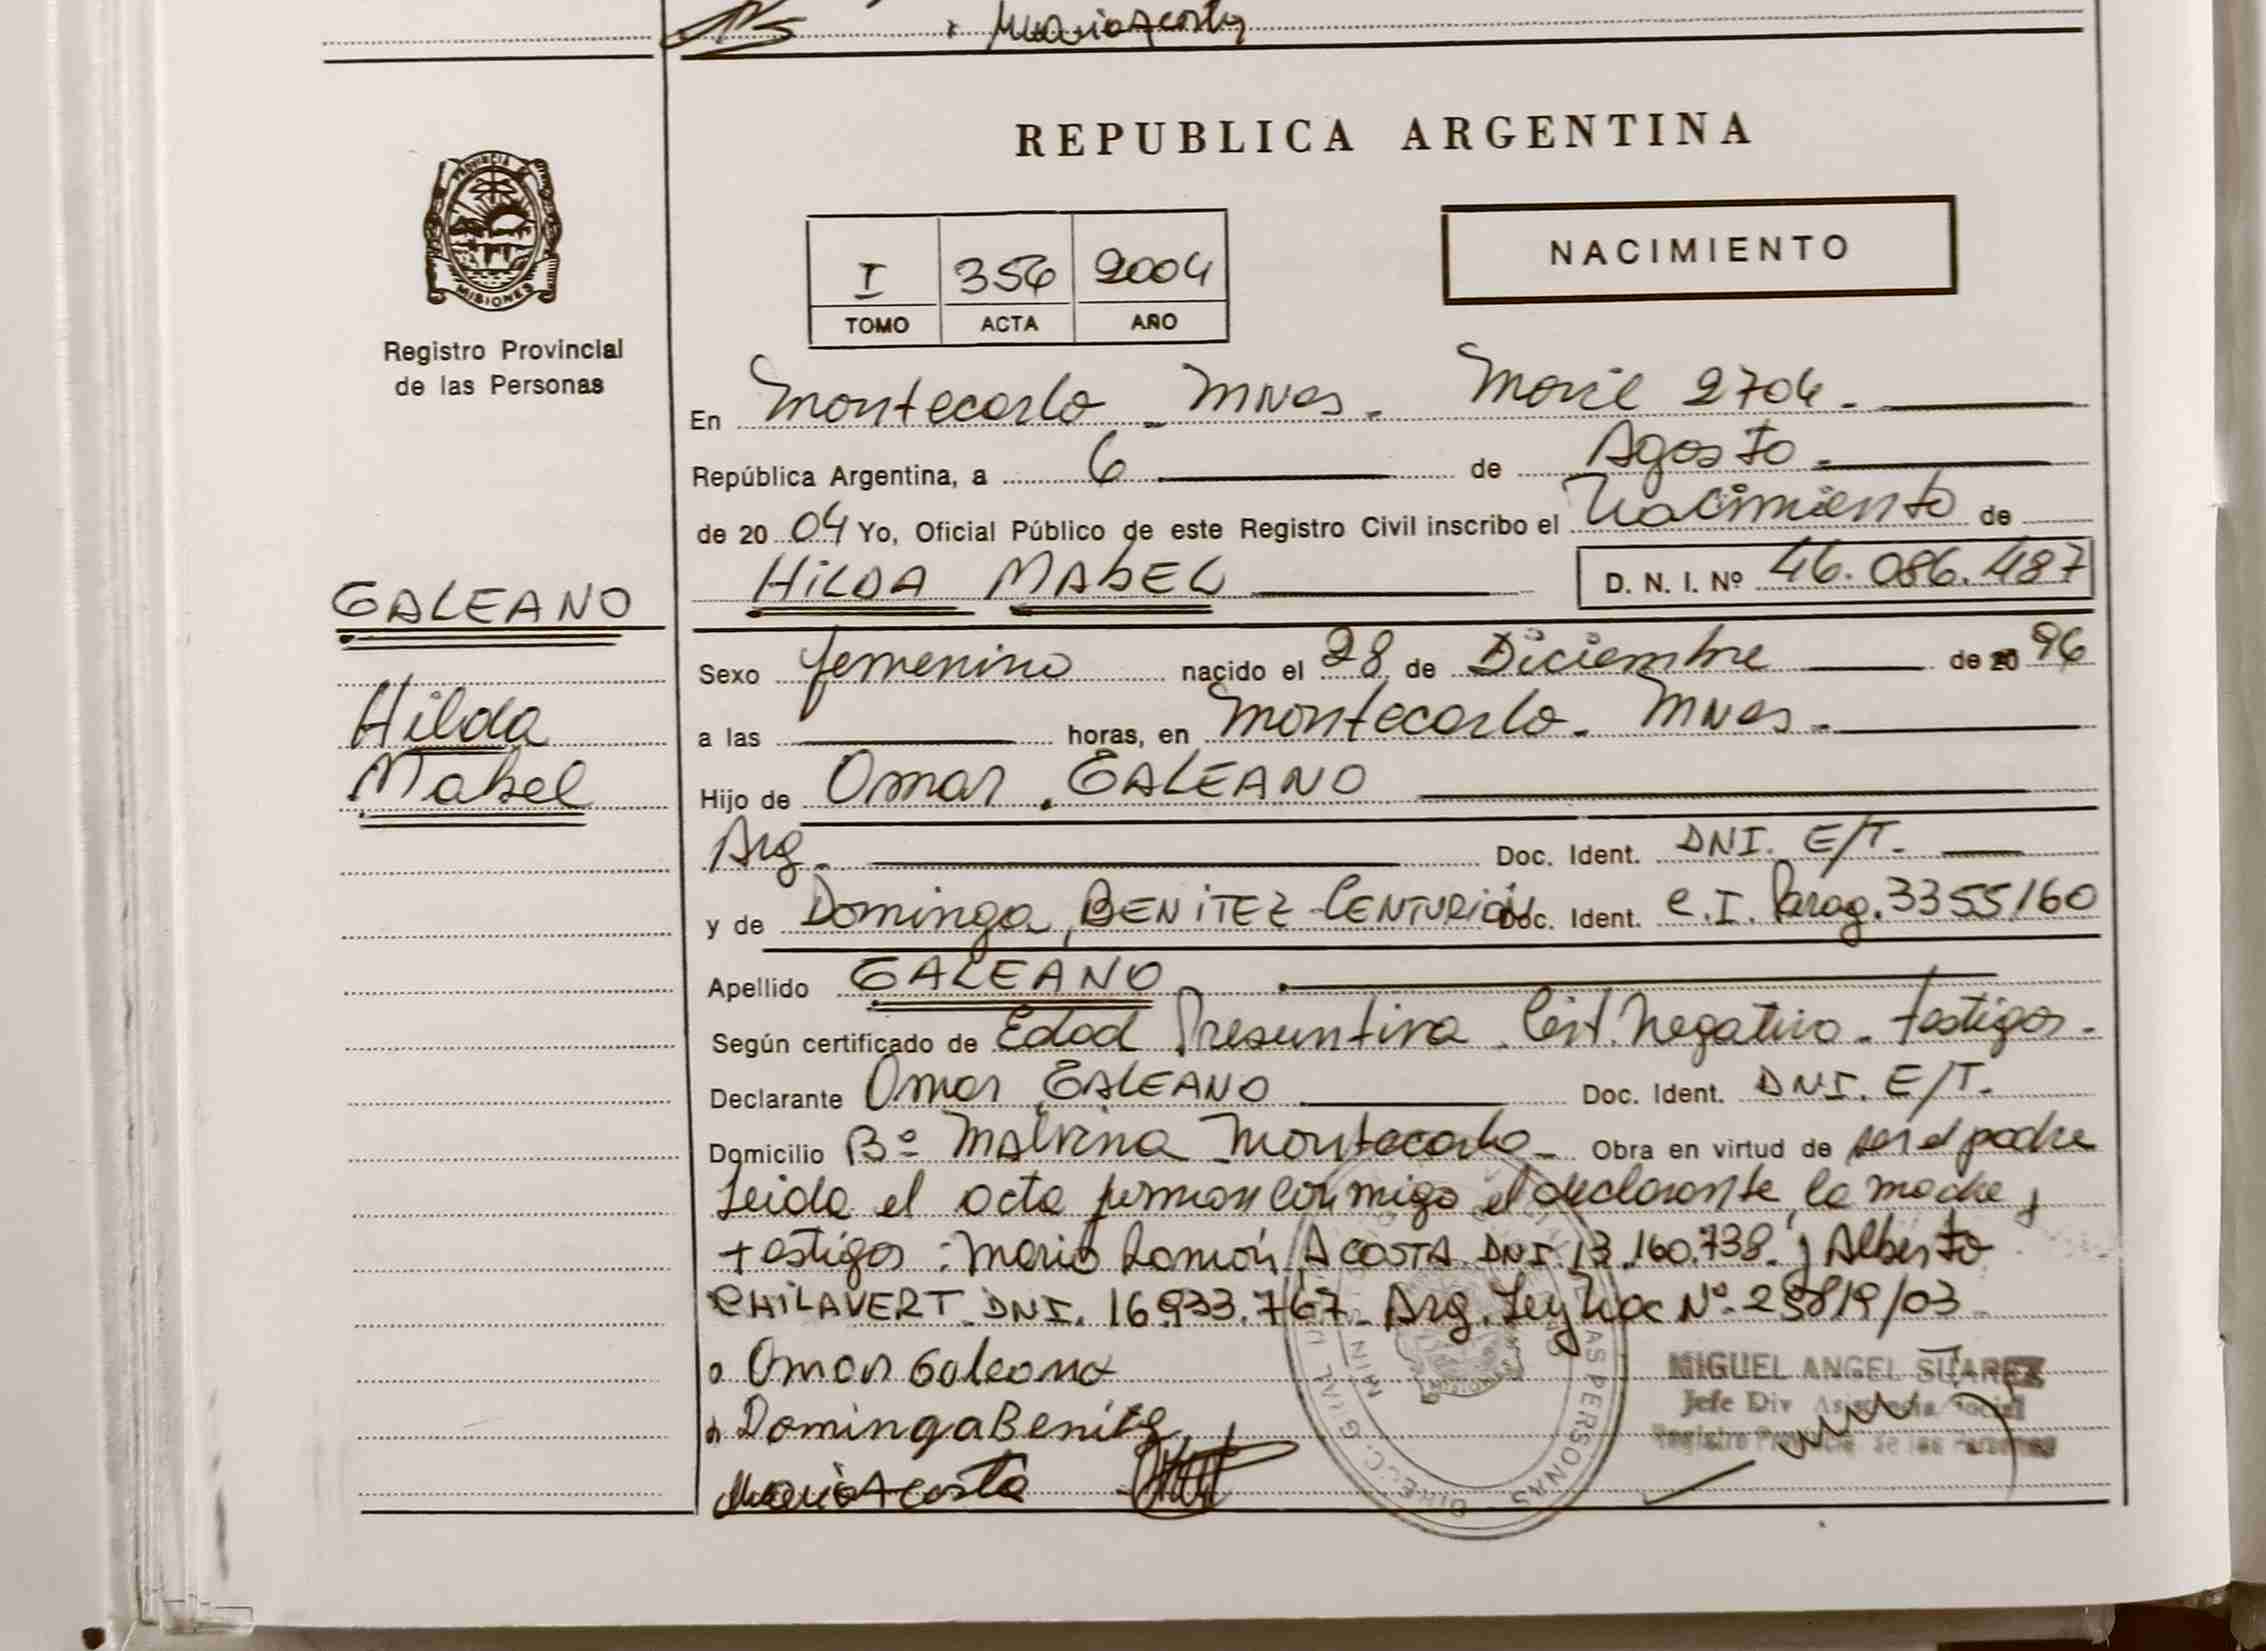 Mario Acosta
REPUBLICA ARGENTINA
PROVINCIA
MISIONES
Registro Provincial
de las Personas
NACIMIENTO
I 356 2004
TOMO ACTA AÑO
En Montecarlo - Mnes. Movil 2704.
República Argentina, a 6 de Agosto.
de 2004 Yo, Oficial Público de este Registro Civil inscribo el Nacimiento de
HILDA MABEL D. N. I. Nº 46.086.487
GALEANO
Hilda
Mabel
Sexo femenino nacido el 28 de Diciembre de 96
a las horas, en Montecarlo. Mnes.
Hijo de Omar, GALEANO
Arg. Doc. Ident. DNI. E/T.
y de Dominga, BENITEZ CENTURION Doc. Ident. C.I. Parag. 3355160
Apellido GALEANO
Según certificado de Edad Presuntiva. Cert. Negativo. testigos.
Declarante Omar GALEANO Doc. Ident. DNI. E/T.
Domicilio Bº Malvina Montecarlo - Obra en virtud de ser el padre
Leida el acta firman conmigo el declarante, la madre y
testigos: Mario Ramón ACOSTA DNI 13.160.738. y Alberto
CHILAVERT DNI. 16.933.767. Arg. Ley Nac Nº 25819/03
Omar Galeano
Dominga Benitez
Mario Acosta
MIGUEL ANGEL SUAREZ
Jefe Div Asistencia Social
Registro Provincial de las Personas
AS PERSONAS
DIRECC. GRAL